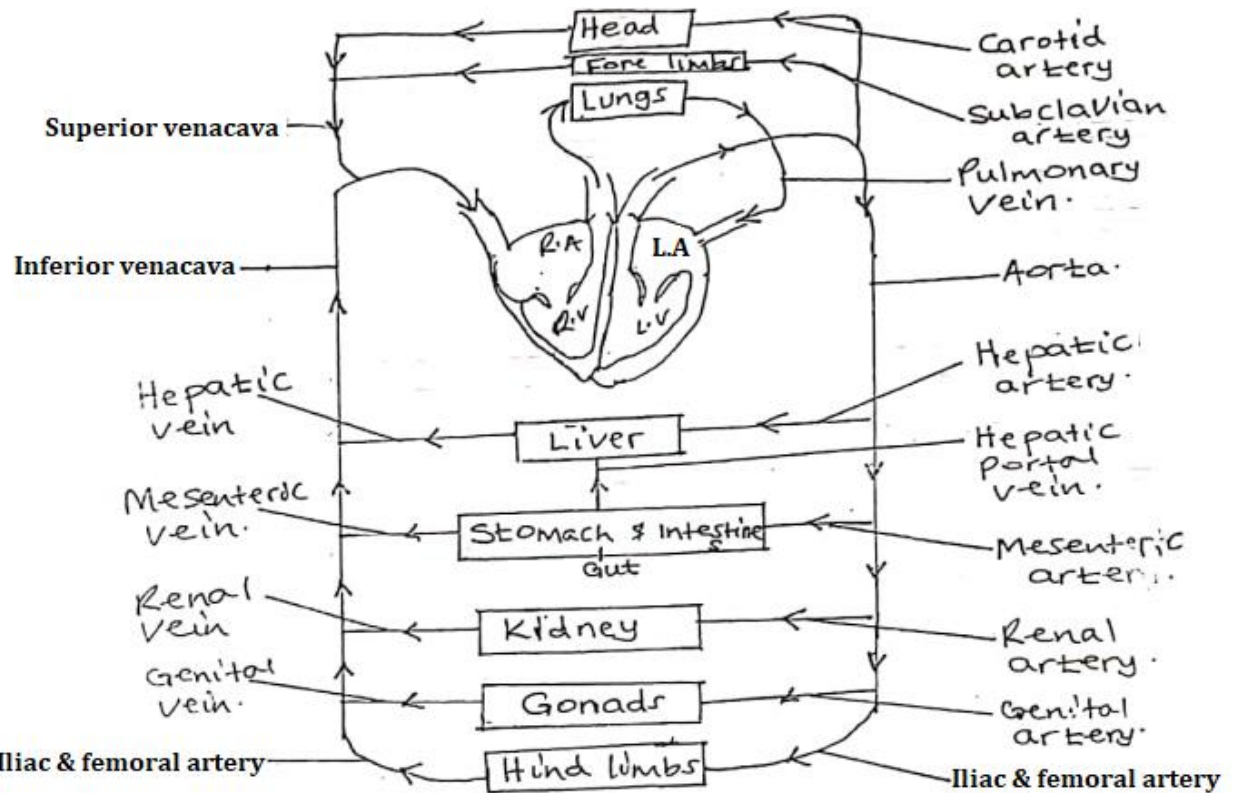 Head
Fore limbs
Lungs
Carotid
artery
Subclavian
artery
Pulmonary
vein.
Superior venacava
R.A
L.A
Inferior venacava
Aorta.
R.V
L.V
Hepatic
artery.
Hepatic
vein
Liver
Hepatic
Portal
vein.
Mesenteric
vein.
Stomach & Intestine
s
Gut
Mesenteric
Renal
vein
Kidney
Renal
artery.
Genital
vein.
Gonads
Genital
artery.
Iliac & femoral artery
Hind limbs
Iliac & femoral artery